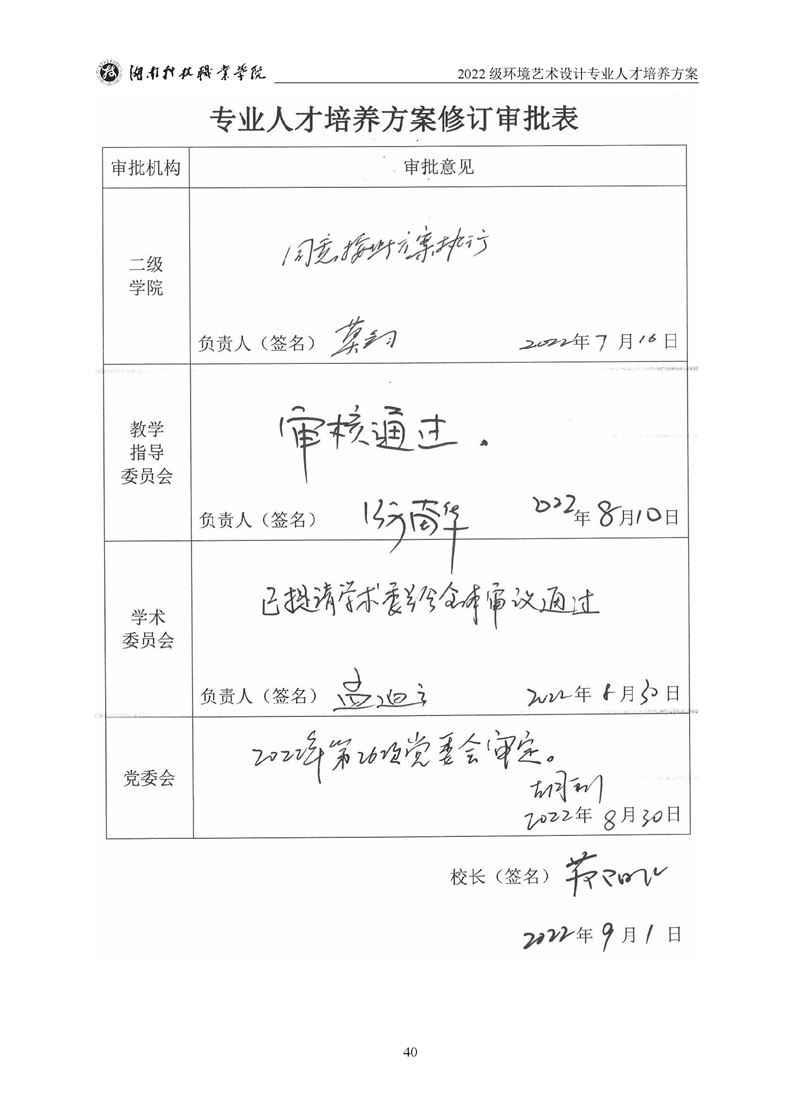 湖南科技职业学院
2022 级环境艺术设计专业人才培养方案
专业人才培养方案修订审批表
审批机构 审批意见
二级
学院
同意按此方案执行
负责人（签名）
2022年7月16日
教学
指导
委员会
审核通过。
负责人（签名）
2022年8月10日
学术
委员会
已提请学术委员会全体审议通过
负责人（签名）
2022年8月30日
党委会
2022年第26次党委会审定。
2022年8月30日
校长（签名）
2022年9月1日
40